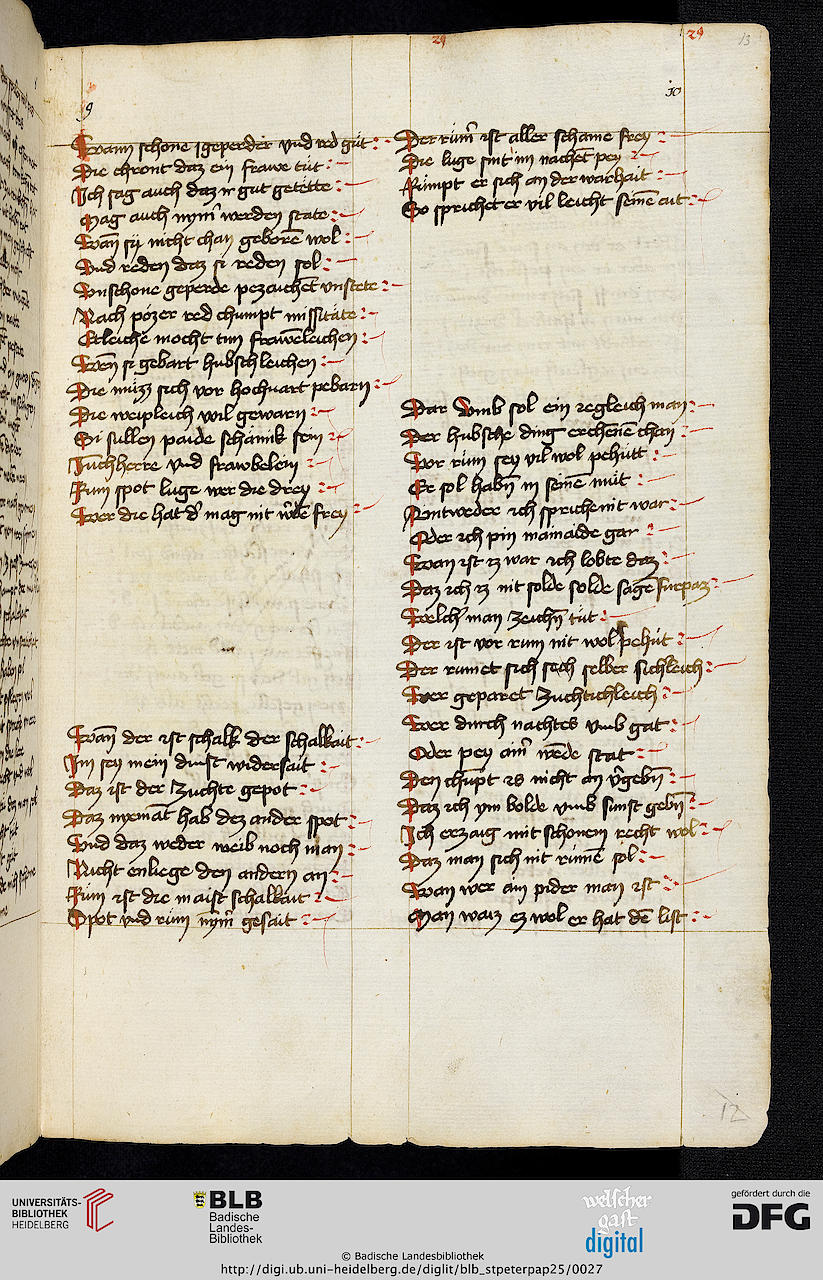 29
29
13
9
10
Wann schone ꝛgeperder vnd red güt
Die chront daz ein frawe tüt
Ich sag auch daz ir gut getëtte
Mag auch nym̄ werden state
Wan̄ sy nicht chan geborē wol
Vnd reden daz si reden sol
Vnschone geperde pezaichēt vnstete
Nach pözer red chumpt missitäte
Etleiche mocht tun frawēleichen
Wen̄ si gebart hubschleichen
Die müzz sich vor hochuart pebarn
Die weipleich wil gewarn
Si sullen paide schämik sein
Junchherre vnd frawbelein
Rum spot luge wer die drey
Wer die hat d' mag nit w'dē frey
Wan̄ der ist schalk der schalkait
Im sey mein dinst widersait
Daz ist der Zuchte gepot
Daz nyemāt hab dez ander spot
Vnd daz weder weib noch man
Nicht enliege den andern an
Rüm ist die maist schalkait
Spot vnd rüm nym̄ gesait
Der rüm̄ ist aller schame frey
Die luge sint im nachēt pey
Rümpt er sich an der warhait
So sprichet er vil leicht seinē ait
Dar vmb sol ein iegleich man
Der hubsche ding erchenē chan
Vor rüm sey vil wol pehütt
Er sol habn̄ in seinē müt
Aintweder ich spriche nit war
Oder ich pin mainaide gar
Wan ist iz war ich lobte daz
Daz ich iz nit solde solde sagē fürpaz
Welch' man Zeichn̄ tüt
Der ist vor rum nit wol pehüt
Der rumet sich sech selber sichleich
Wer geparet Zuchtichleich
Wer durch nachtes vmb gat
Oder pey ain' wēde stat
Den chūpt es nicht an v'gebn̄
Daz ich ym bolde vmb sunst gebn̄
Ich erzaig mit schonem recht wol
Daz man sich nit rümē sol
Wan wer ain pider man ist
Man waiz ez wol er hat dē list
12
UNIVERSITÄTS-
BIBLIOTHEK
HEIDELBERG
BLB
Badische
Landes-
Bibliothek
welscher
gast
digital
gefördert durch die
DFG
© Badische Landesbibliothek
http://digi.ub.uni-heidelberg.de/diglit/blb_stpeterpap25/0027